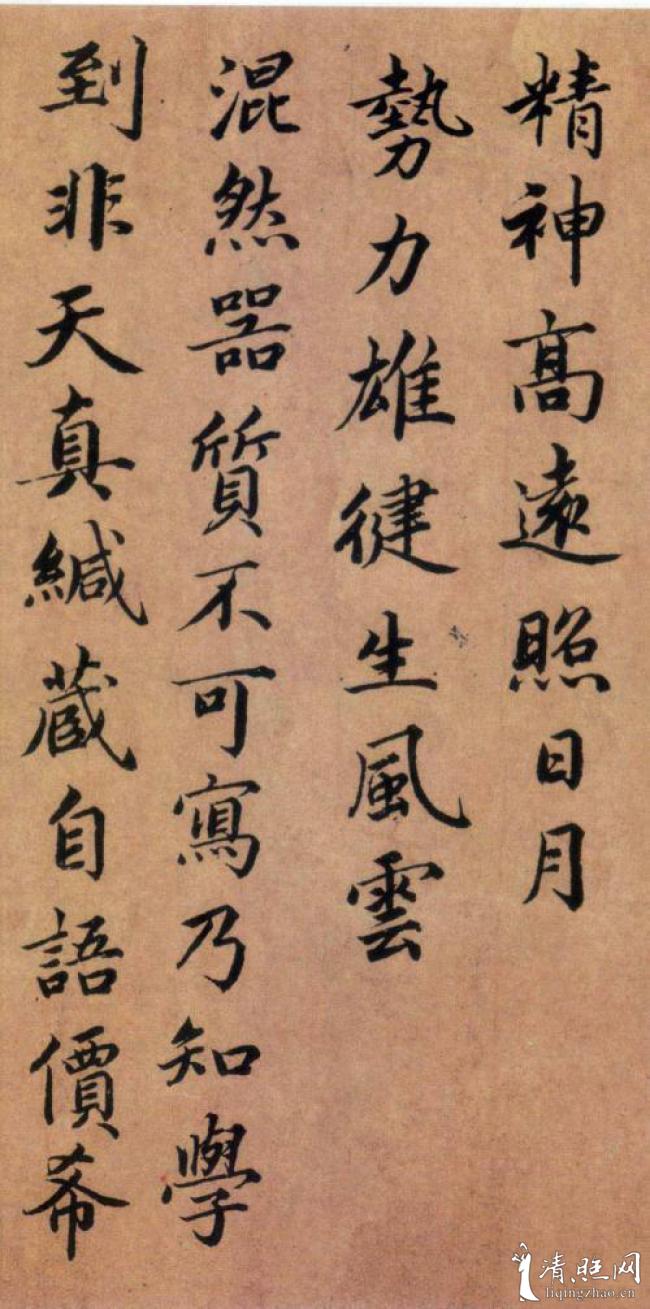 精神高遠照日月
勢力雄健生風雲
混然器質不可寫乃知學
到非天真緘蔵自語價希
清照网
liqingzhao.cn